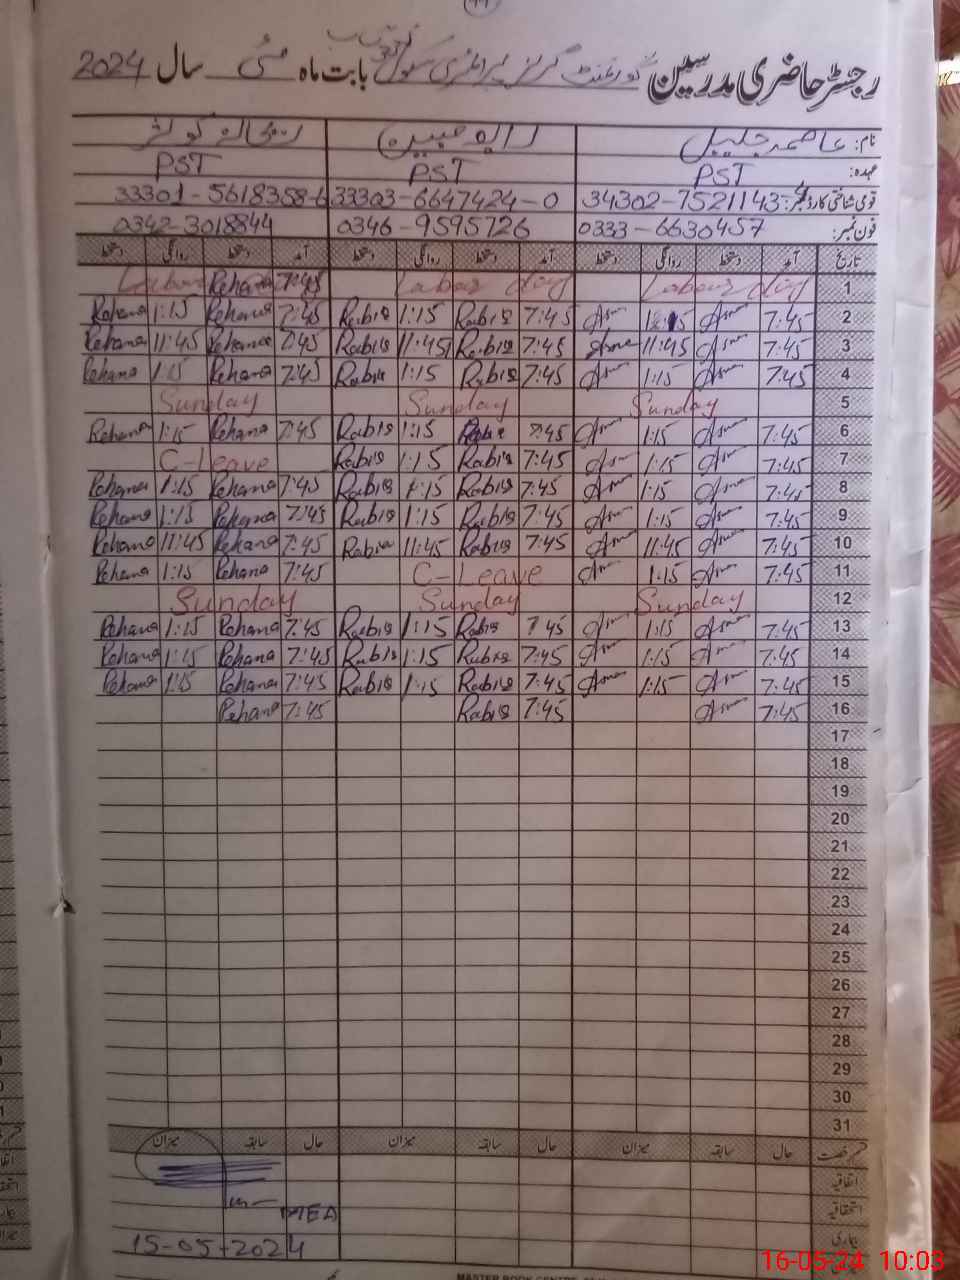 رجسٹر حاضری مدرسین گورنمنٹ گرلز پرائمری سکول بابت ماہ مئی سال 2024
نام: عاصمہ جلیل رابعہ مبین ریحانہ کوثر
عہدہ: PST PST PST
قومی شناختی کارڈ نمبر: 34302-7521143-4 33303-6647424-0 33301-5618358-6
فون نمبر: 0333-6630457 0346-9595726 0342-3018844
تاریخ آمد دستخط روانگی دستخط آمد دستخط روانگی دستخط آمد دستخط روانگی دستخط
1 Labour day Labour day Labour Rehana 7:45
2 7:45 Asma 1:15 Asma 7:45 Rabia 1:15 Rabia 7:45 Rehana 1:15 Rehana
3 7:45 Asma 11:45 Asma 7:45 Rabia 11:45 Rabia 7:45 Rehana 11:45 Rehana
4 7:45 Asma 1:15 Asma 7:45 Rabia 1:15 Rabia 7:45 Rehana 1:15 Rehana
5 Sunday Sunday Sunday
6 7:45 Asma 1:15 Asma 7:45 Rabia 1:15 Rabia 7:45 Rehana 1:15 Rehana
7 7:45 Asma 1:15 Asma 7:45 Rabia 1:15 Rabia C-Leave
8 7:45 Asma 1:15 Asma 7:45 Rabia 1:15 Rabia 7:45 Rehana 1:15 Rehana
9 7:45 Asma 1:15 Asma 7:45 Rabia 1:15 Rabia 7:45 Rehana 1:15 Rehana
10 7:45 Asma 11:45 Asma 7:45 Rabia 11:45 Rabia 7:45 Rehana 11:45 Rehana
11 7:45 Asma 1:15 Asma C-Leave 7:45 Rehana 1:15 Rehana
12 Sunday Sunday Sunday
13 7:45 Asma 1:15 Asma 7:45 Rabia 1:15 Rabia 7:45 Rehana 1:15 Rehana
14 7:45 Asma 1:15 Asma 7:45 Rabia 1:15 Rabia 7:45 Rehana 1:15 Rehana
15 7:45 Asma 1:15 Asma 7:45 Rabia 1:15 Rabia 7:45 Rehana 1:15 Rehana
16 7:45 Asma 7:45 Rabia 7:45 Rehana
17
18
19
20
21
22
23
24
25
26
27
28
29
30
31
قسم رخصت حال سابقہ میزان حال سابقہ میزان حال سابقہ میزان
اتفاقیہ
استحقاقیہ
MEA
بیماری
15-05-2024
16-05-24 10:03
MASTER BOOK CENTRE